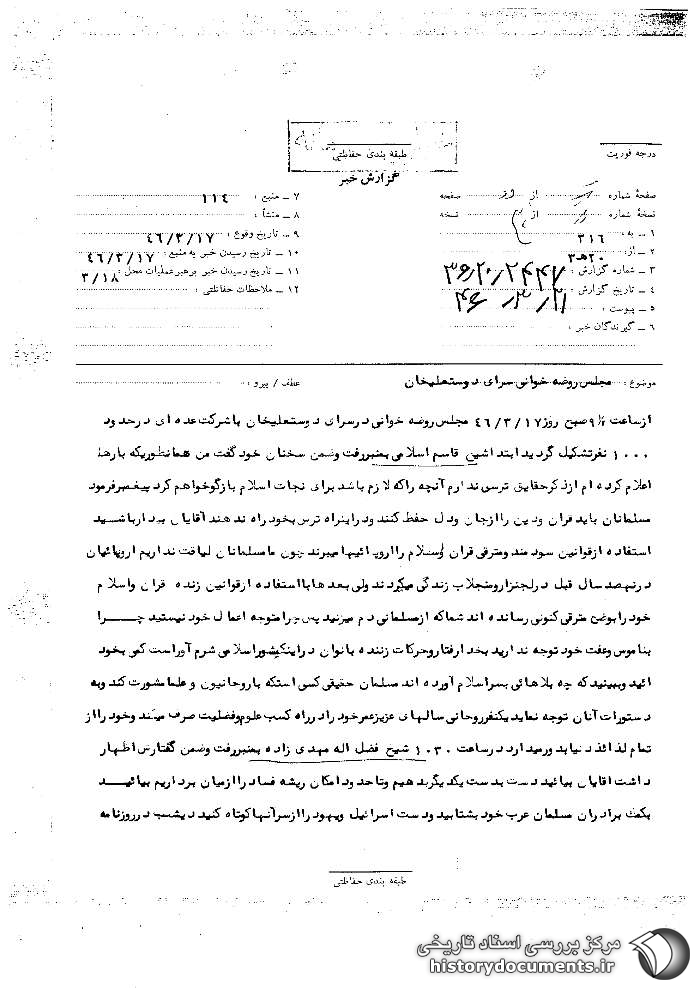 طبقه بندی حفاظتی
درجه فوریت
گزارش خبر
صفحهٔ شماره از صفحه
نسخهٔ شماره از نسخه
۱ ـ به : ۳۱۶
۲ ـ از : ۲۰هـ۳
۳ ـ شماره گزارش :
۴ ـ تاریخ گزارش :
۵ ـ پیوست :
۶ ـ گیرندگان خبر :
۷ ـ منبع : ۱۱۴
۸ ـ منشأ :
۹ ـ تاریخ وقوع : ۴۶/۳/۱۷
۱۰ ـ تاریخ رسیدن خبر به منبع : ۴۶/۳/۱۷
۱۱ ـ تاریخ رسیدن خبر برهبر عملیات محل : ۳/۱۸
۱۲ ـ ملاحظات حفاظتی :
موضوع : مجلس روضه خوانی سرای دوستعلیخان عطف / پیرو :
از ساعت ۹/۵ صبح روز ۴۶/۳/۱۷ مجلس روضه خوانی در سرای دوستعلیخان با شرکت عده ای در حدود
۱۰۰۰ نفر تشکیل گردید ابتدا شیخ قاسم اسلامی بمنبر رفت وضمن سخنان خود گفت من همانطوریکه بارها
اعلام کرده ام از ذکر حقایق ترسی ندارم آنچه را که لازم باشد برای نجات اسلام بازگو خواهم کرد پیغمبر فرمود
مسلمانان باید قران ودین را از جان ودل حفظ کنند ودر اینراه ترس بخود راه ندهند آقایان بیدار باشید
استفاده از قوانین سودمند ومترقی قران واسلام را اروپائیها میبرند چون ما مسلمانان لیاقت نداریم اروپائیان
در نهصد سال قبل در لجنزار ومنجلاب زندگی میکردند ولی بعدها با استفاده از قوانین زنده قران واسلام
خود را بوضع مترقی کنونی رسانده اند شما که از مسلمانی دم میزنید پس چرا متوجه اعمال خود نیستید چرا
بناموس وعفت خود توجه ندارید بخدا رفتار وحرکات زننده بانوان در این کشور اسلامی شرم آور است کمی بخود
ائید وببینید که چه بلاهائی بسر اسلام آورده اند مسلمان حقیقی کسی استکه با روحانیون وعلما مشورت کند وبه
دستورات آنان توجه نماید یکنفر روحانی سالهای عزیز عمر خود را در راه کسب علوم وفضلیت صرف میکند وخود را از
تمام لذائذ دنیا بدور میدارد در ساعت ۱۰۳۰ شیخ فضل اله مهدی زاده بمنبر رفت وضمن گفتارش اظهار
داشت اقایان بیائید دست بدست یکدیگر بدهیم وتا حدود امکان ریشه فساد را از میان برداریم بیائید
بکمک برادران مسلمان عرب خود بشتابید ودست اسرائیل ویهود را از سر آنها کوتاه کنید دیشب در روزنامه
طبقه بندی حفاظتی
مرکز بررسی اسناد تاریخی
historydocuments.ir